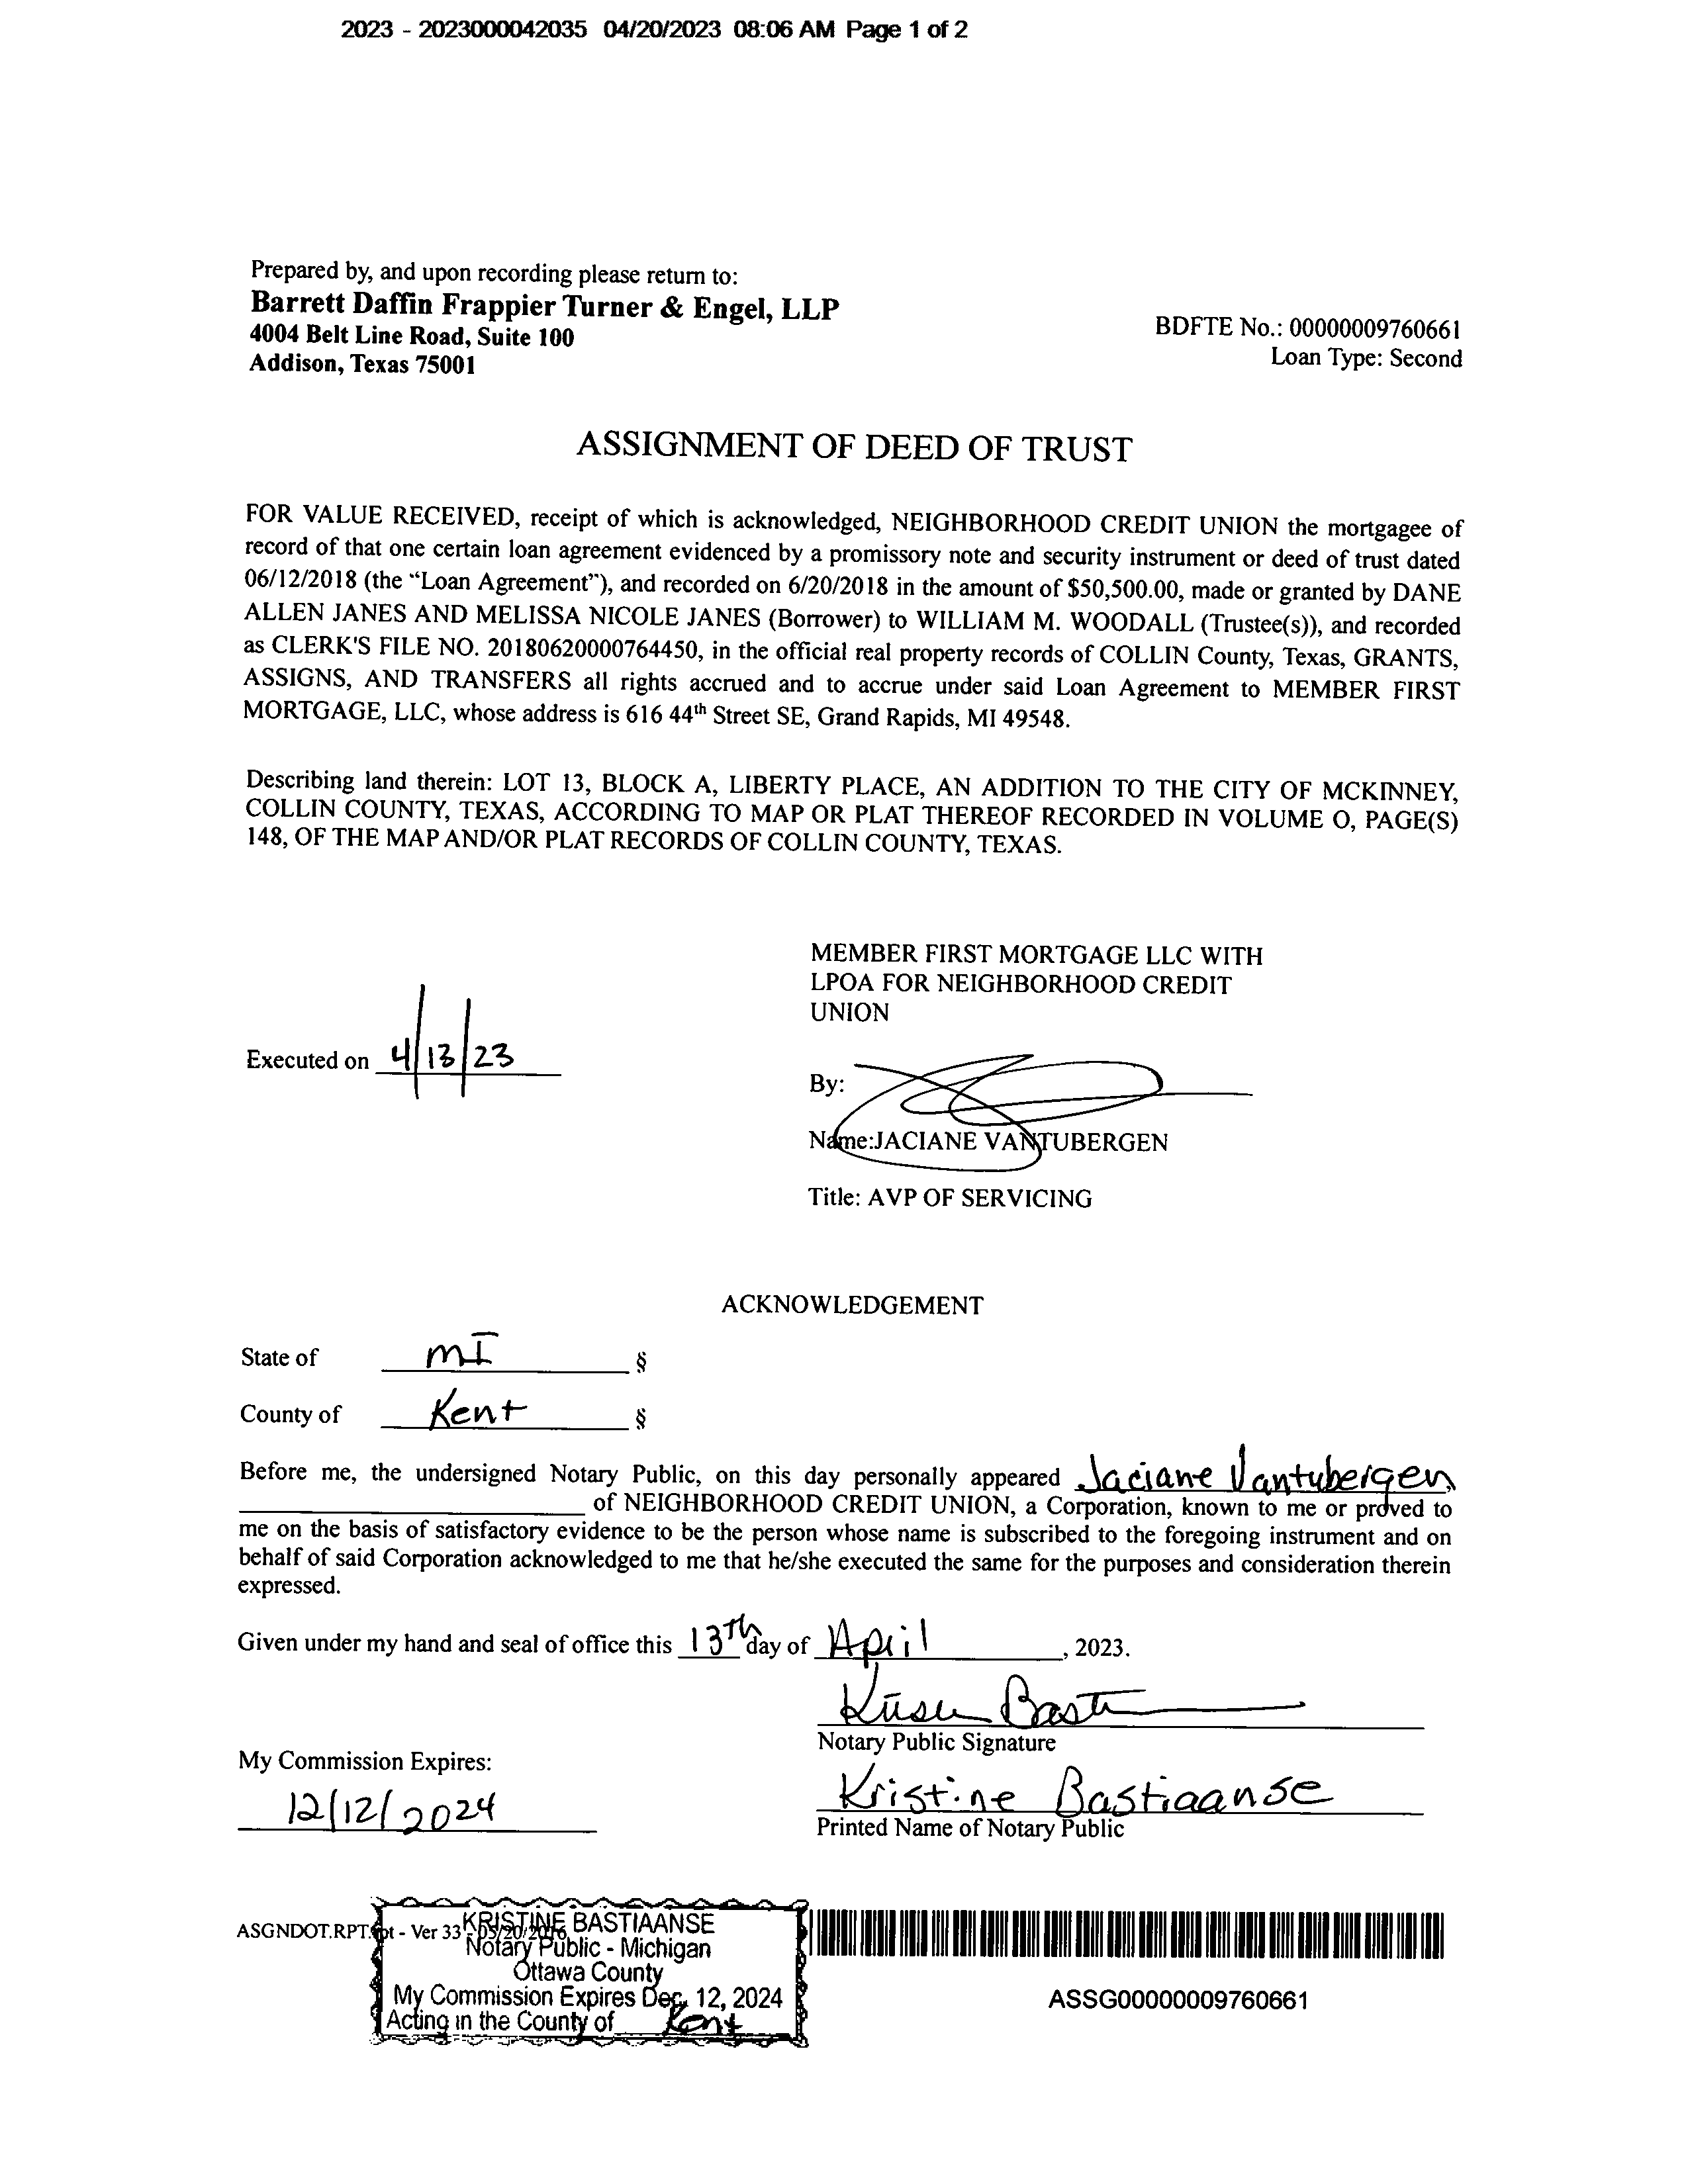 2023 - 2023000042035 04/20/2023 08:06 AM Page 1 of 2
Prepared by, and upon recording please return to:
Barrett Daffin Frappier Turner & Engel, LLP
4004 Belt Line Road, Suite 100
Addison, Texas 75001
BDFTE No.: 00000009760661
Loan Type: Second
ASSIGNMENT OF DEED OF TRUST
FOR VALUE RECEIVED, receipt of which is acknowledged, NEIGHBORHOOD CREDIT UNION the mortgagee of
record of that one certain loan agreement evidenced by a promissory note and security instrument or deed of trust dated
06/12/2018 (the “Loan Agreement”), and recorded on 6/20/2018 in the amount of $50,500.00, made or granted by DANE
ALLEN JANES AND MELISSA NICOLE JANES (Borrower) to WILLIAM M. WOODALL (Trustee(s)), and recorded
as CLERK'S FILE NO. 20180620000764450, in the official real property records of COLLIN County, Texas, GRANTS,
ASSIGNS, AND TRANSFERS all rights accrued and to accrue under said Loan Agreement to MEMBER FIRST
MORTGAGE, LLC, whose address is 616 44th Street SE, Grand Rapids, MI 49548.
Describing land therein: LOT 13, BLOCK A, LIBERTY PLACE, AN ADDITION TO THE CITY OF MCKINNEY,
COLLIN COUNTY, TEXAS, ACCORDING TO MAP OR PLAT THEREOF RECORDED IN VOLUME O, PAGE(S)
148, OF THE MAP AND/OR PLAT RECORDS OF COLLIN COUNTY, TEXAS.
MEMBER FIRST MORTGAGE LLC WITH
LPOA FOR NEIGHBORHOOD CREDIT
UNION
Executed on 4/13/23
By:
Name:JACIANE VANTUBERGEN
Title: AVP OF SERVICING
ACKNOWLEDGEMENT
State of MI §
County of Kent §
Before me, the undersigned Notary Public, on this day personally appeared Jaciane Vantubergen,
of NEIGHBORHOOD CREDIT UNION, a Corporation, known to me or proved to
me on the basis of satisfactory evidence to be the person whose name is subscribed to the foregoing instrument and on
behalf of said Corporation acknowledged to me that he/she executed the same for the purposes and consideration therein
expressed.
Given under my hand and seal of office this 13th day of April, 2023.
Notary Public Signature
My Commission Expires:
12/12/2024
Kristine Bastiaanse
Printed Name of Notary Public
ASGNDOT.RPT.rpt - Ver 33 - 05/20/2016
KRISTINE BASTIAANSE
Notary Public - Michigan
Ottawa County
My Commission Expires Dec. 12, 2024
Acting in the County of Kent
ASSG00000009760661